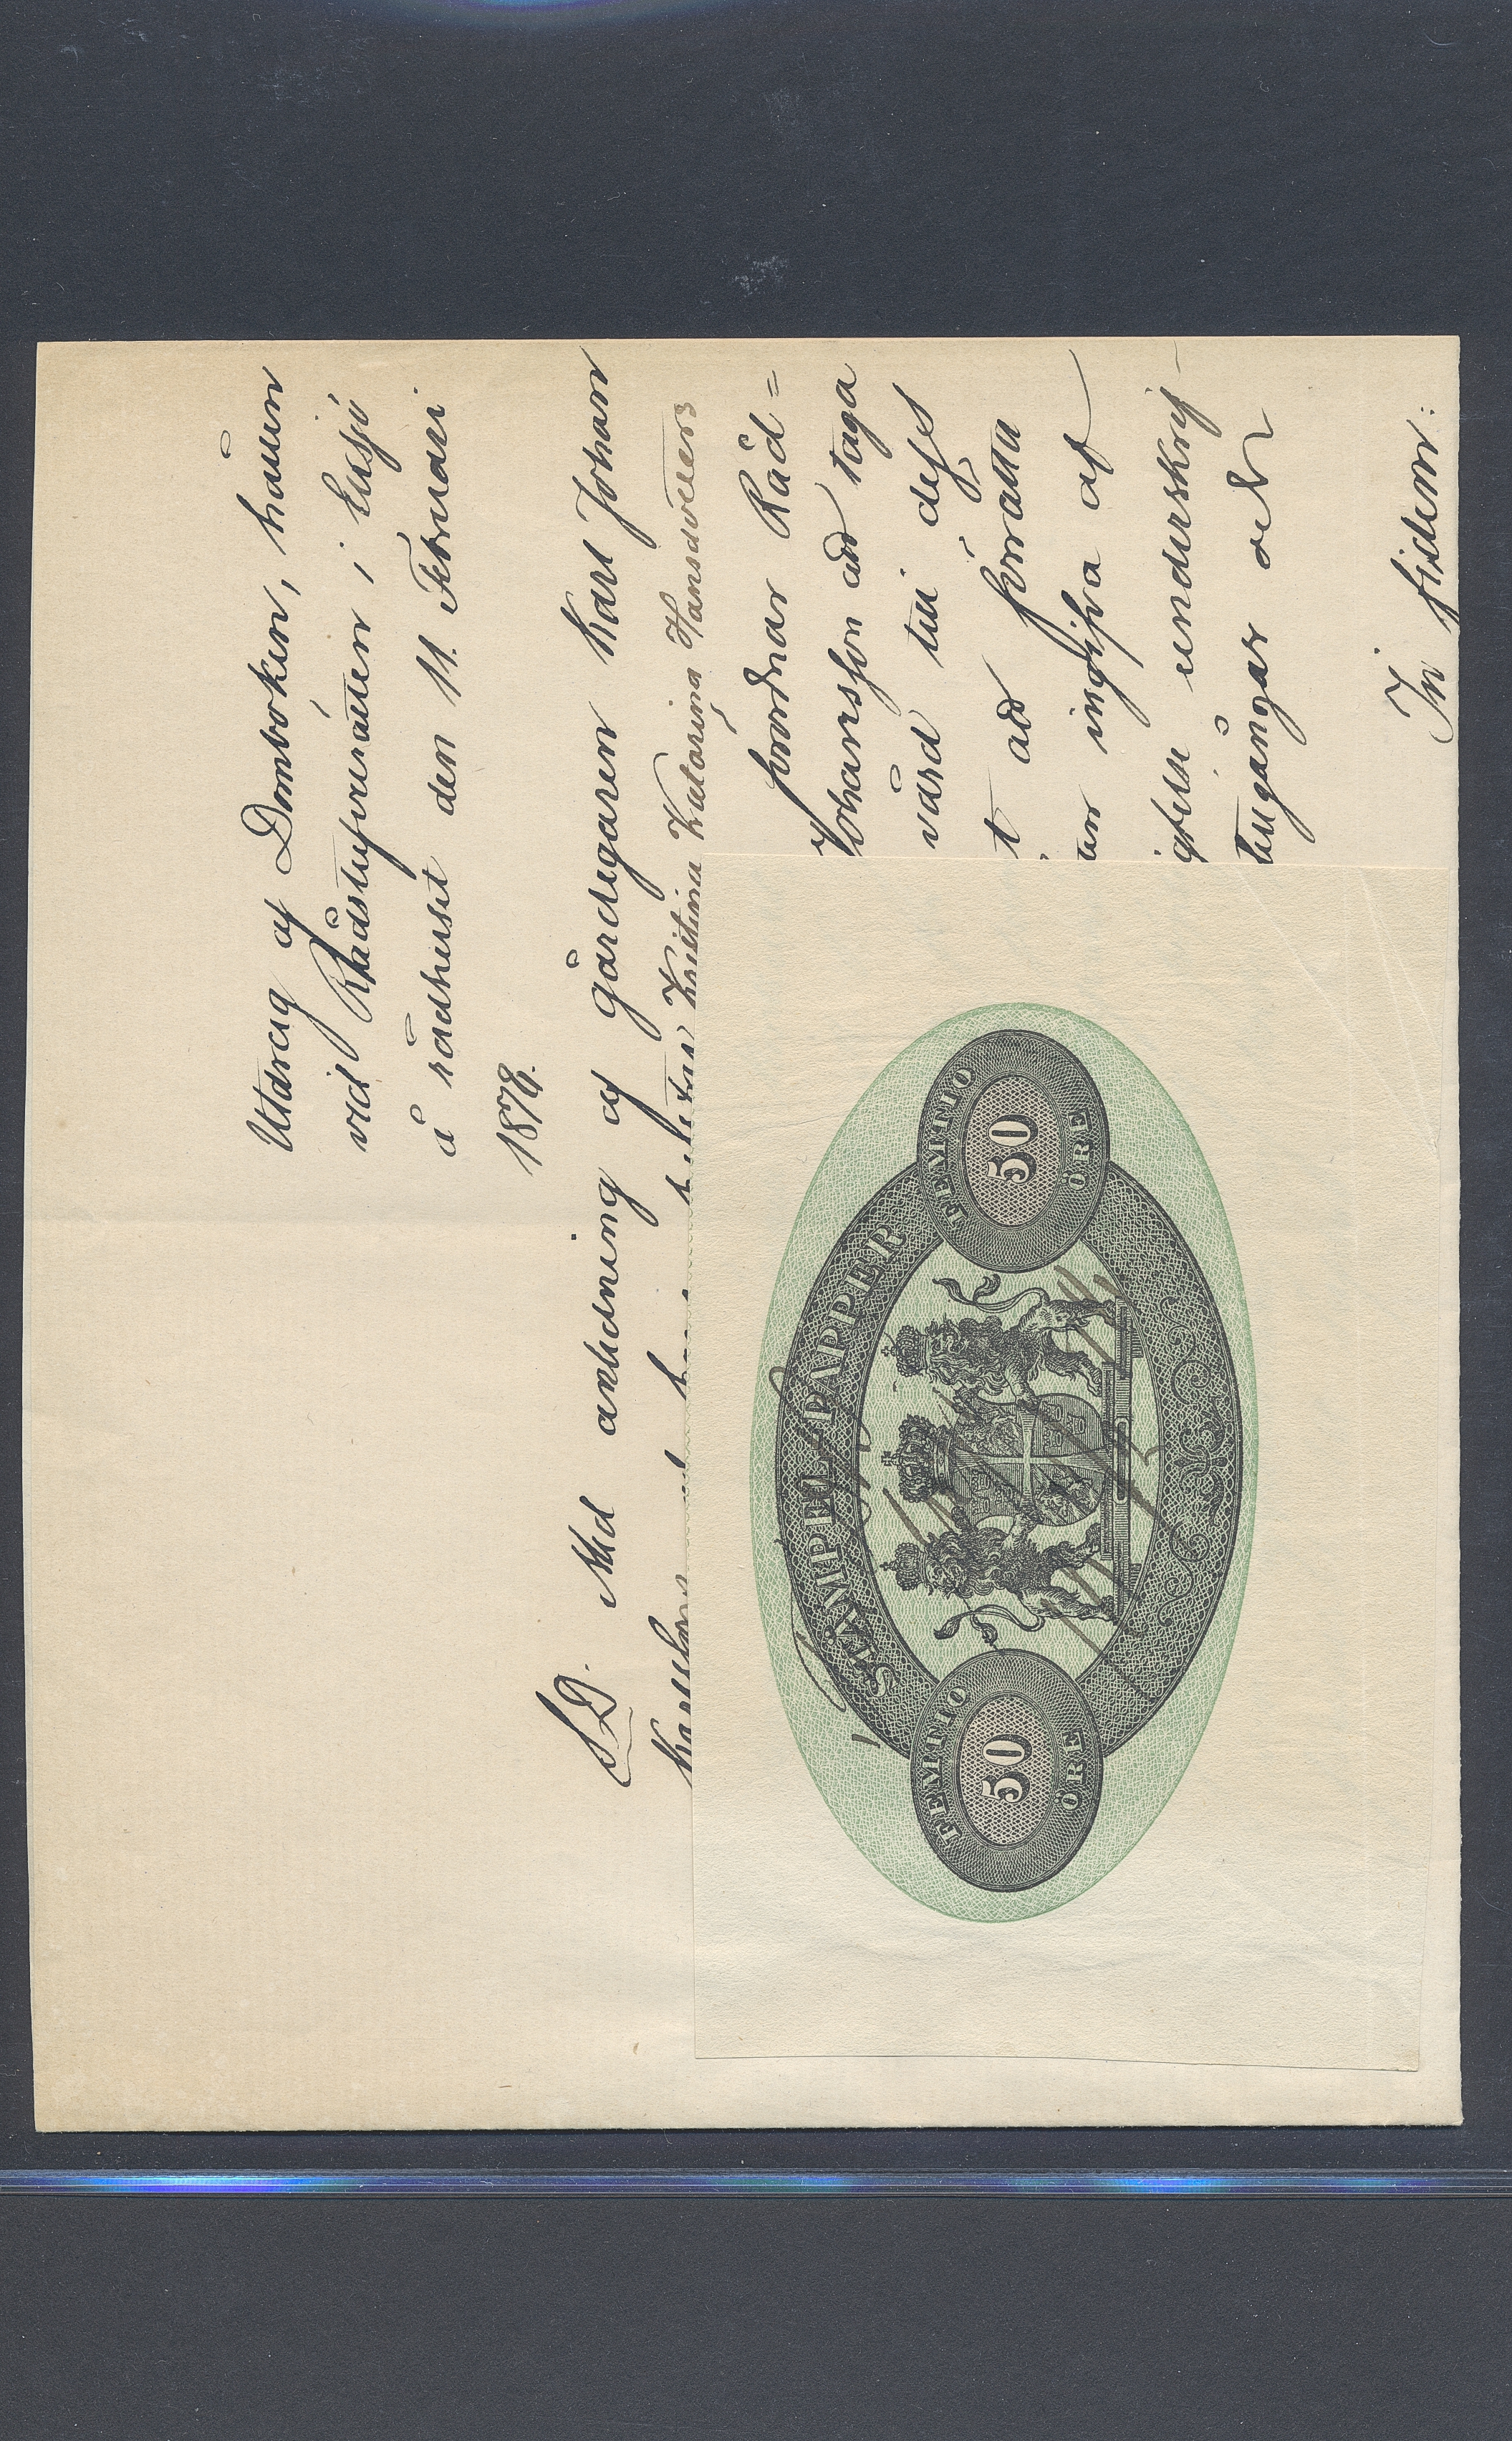 Utdrag af Domboken, hållen
vid Rådstufvurätten i Eksjö
å rådhuset den 11. Februari
1878.
S.D. Med anledning af gårdegaren Karl Johan
Kristina Katarina Hansdotters
förordnar Råd=
Johansson att taga
vård till dess
t att förrätta
ingifva af
underskrif-
tillgångar och
In fidem:
STÄMPEL-PAPPER
FEMTIO
50
ÖRE
FEMTIO
50
ÖRE